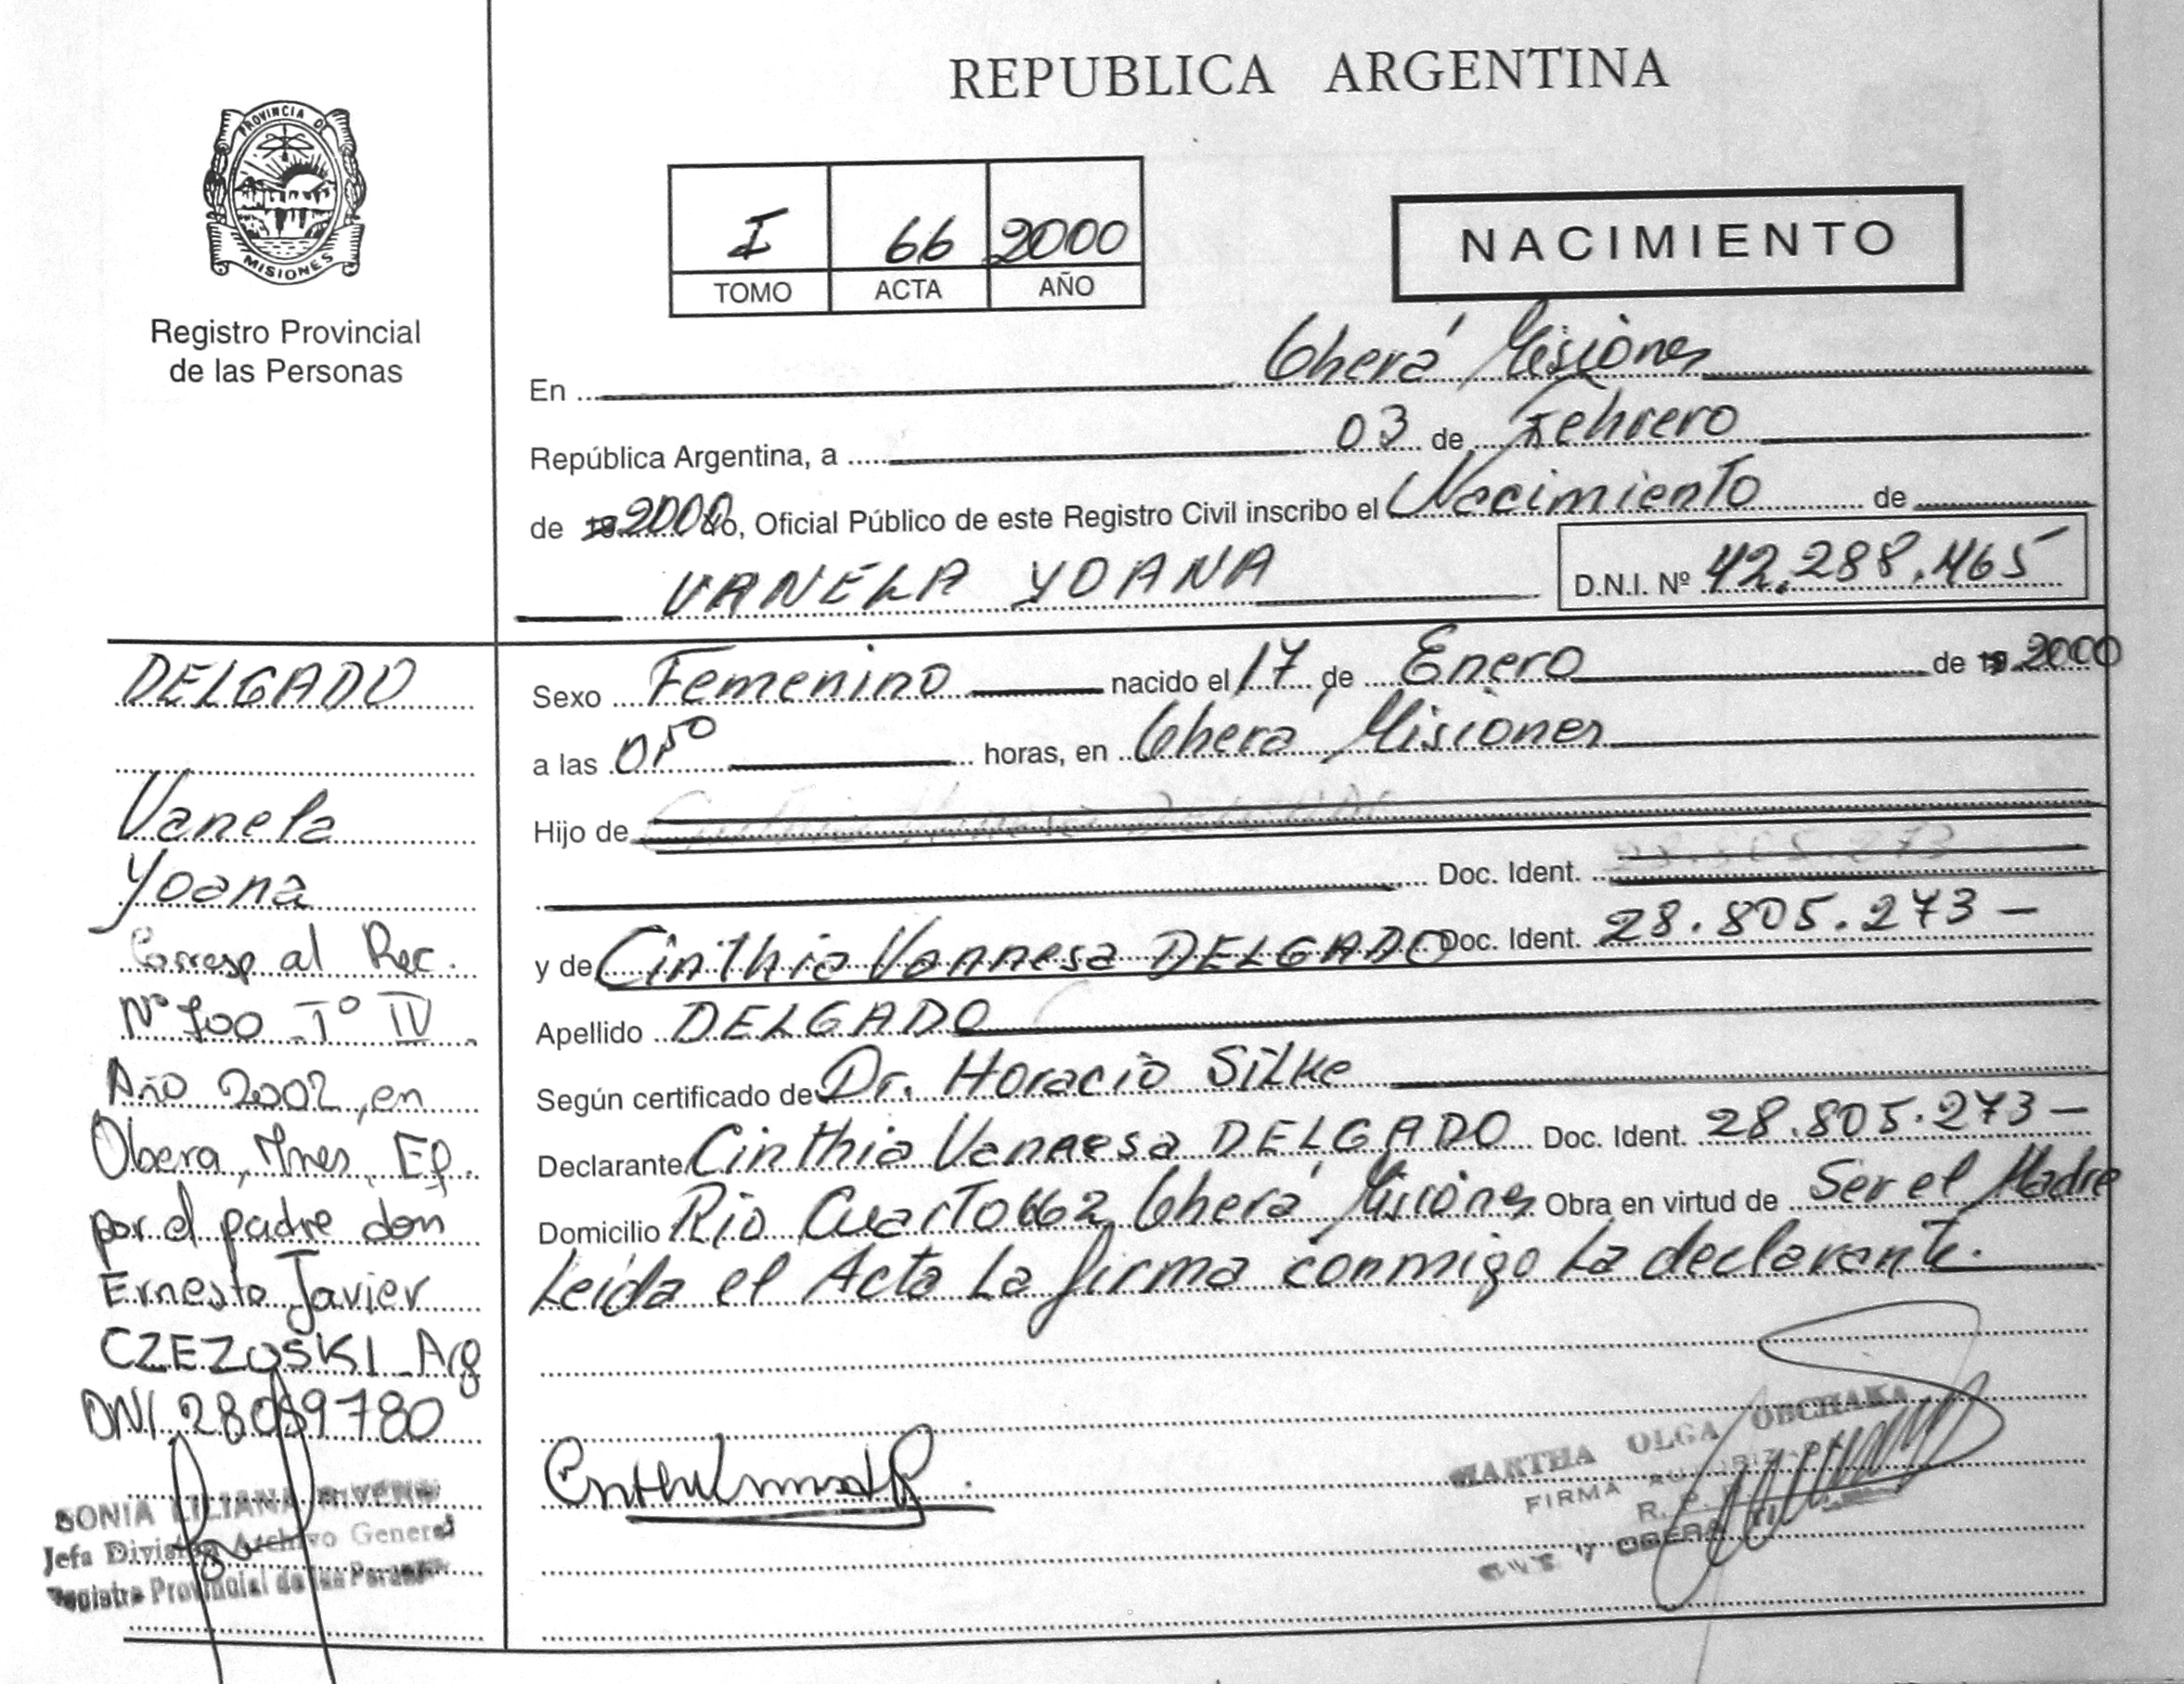 REPUBLICA ARGENTINA
PROVINCIA DE
MISIONES
Registro Provincial
de las Personas
I 66 2000
TOMO ACTA AÑO
NACIMIENTO
En Oberá Misiones
República Argentina, a 03 de Febrero
de 2000 yo, Oficial Público de este Registro Civil inscribo el Nacimiento de
VANELA YOANA
D.N.I. Nº 42.288.465
DELGADO
Vanela
Yoana
Corresp al Rec.
Nº 700 Tº IV
Año 2002, en
Obera, Mnes, Ef.
por el padre don
Ernesto Javier
CZEZOSKI Arg
DNI 28059780
SONIA LILIANA
Jefa División Archivo General
Registro Provincial de las Personas
Sexo Femenino nacido el 17 de Enero de 2000
a las 0,50 horas, en Oberá Misiones
Hijo de
Doc. Ident. 28.805.273
y de Cinthia Vannesa DELGADO Doc. Ident. 28.805.273 –
Apellido DELGADO
Según certificado de Dr. Horacio Silke
Declarante Cinthia Vannesa DELGADO Doc. Ident. 28.805.273 –
Domicilio Rio Cuarto 662 Oberá Misiones Obra en virtud de Ser el Madre
Leida el Acta La firma conmigo La declarante.
MARTHA OLGA OBCHAKA
FIRMA AUTORIZADA
R. P.
OBERA